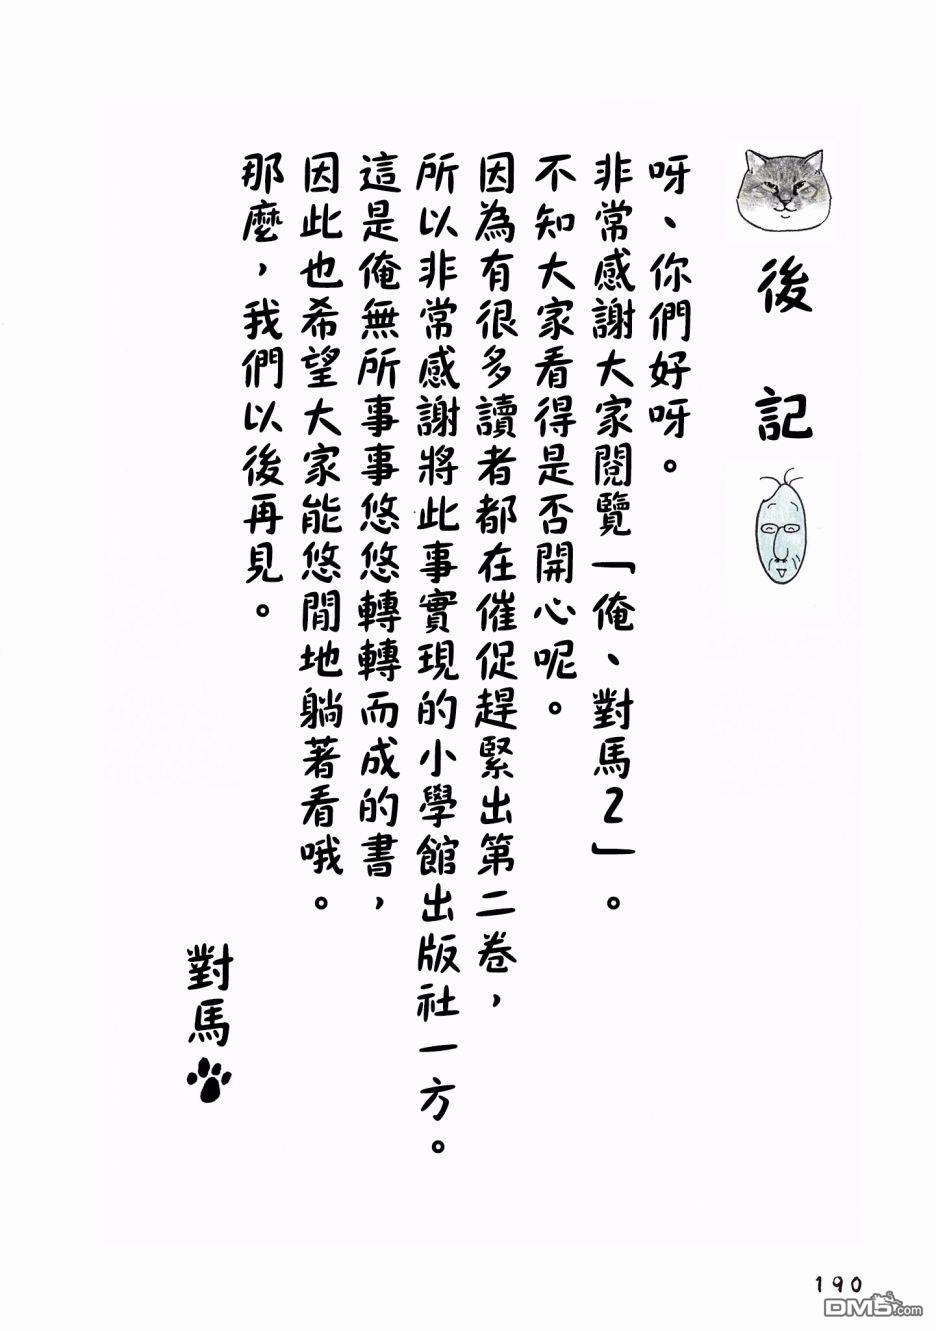 後記
呀、你們好呀。
非常感謝大家閱覽「俺、對馬2」。
不知大家看得是否開心呢。
因為有很多讀者都在催促趕緊出第二卷，
所以非常感謝將此事實現的小學館出版社一方。
這是俺無所事事悠悠轉轉而成的書，
因此也希望大家能悠閒地躺著看哦。
那麼，我們以後再見。
對馬
190
DM5.com